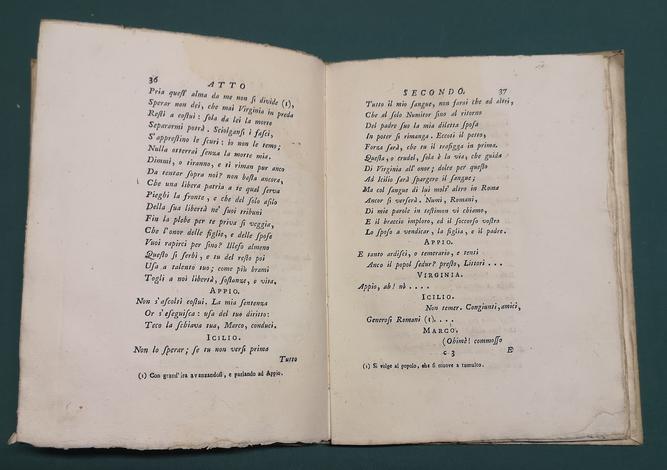 36
ATTO
Pria quest' alma da me non si divide (1),
Sperar non dei, che mai Virginia in preda
Resti a costui: sola da lei la morte
Separarmi potrà. Sciolgansi i fasci,
S'apprestino le scuri: io non le temo;
Nulla otterrai senza la morte mia.
Dimmi, o tiranno, e ti riman pur anco
Da tentar sopra noi? non basta ancora,
Che una libera patria a te qual serva
Pieghi la fronte, e che del solo asilo
Della sua libertà ne' suoi tribuni
Fin la plebe per te priva si veggia,
Che l'onor delle figlie, e delle spose
Vuoi rapirci per fino? Illeso almeno
Questo si serbi, e tu del resto poi
Usa a talento tuo; come più brami
Togli a noi libertà, sostanze, o vita.
APPIO.
Non s'ascolti costui. La mia sentenza
Or s'eseguisca: usa del tuo diritto:
Teco la schiava tua, Marco, conduci.
ICILIO.
Non lo sperar; se tu non versi prima
Tutto
(1) Con grand'ira avanzandosi, e parlando ad Appio.
SECONDO.
37
Tutto il mio sangue, non sarai che ad altri,
Che al solo Numitor fino al ritorno
Del padre suo la mia diletta sposa
In poter si rimanga. Eccoti il petto,
Forza sarà, che tu il trafigga in prima.
Questa, o crudel, sola è la via, che guida
Di Virginia all'onor; dolce per questo
Ad Icilio sarà spargere il sangue;
Ma col sangue di lui molt' altro in Roma
Ancor si verserà. Numi, Romani,
Di mie parole in testimon vi chiamo,
E il braccio imploro, ed il soccorso vostro
Lo sposo a vendicar, la figlia, e il padre.
APPIO.
E tanto ardisci, o temerario, e tenti
Anco il popol sedur? presto, Littori ...
VIRGINIA.
Appio, ah! nò ....
ICILIO.
Non temer. Congiunti, amici,
Generosi Romani (1)....
MARCO.
(Ohimè! commosso
C 3
E
(1) Si volge al popolo, che si muove a tumulto.